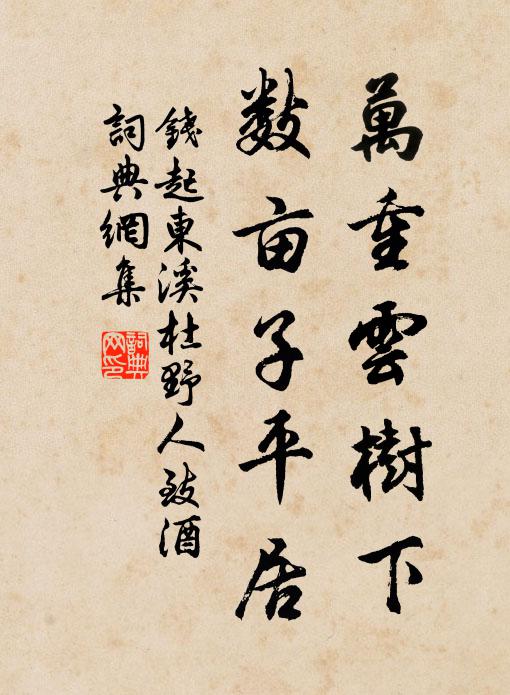 萬重雲樹下
數亩子平居
錢起東溪杜野人致酒
詞典網集
詞典
网印